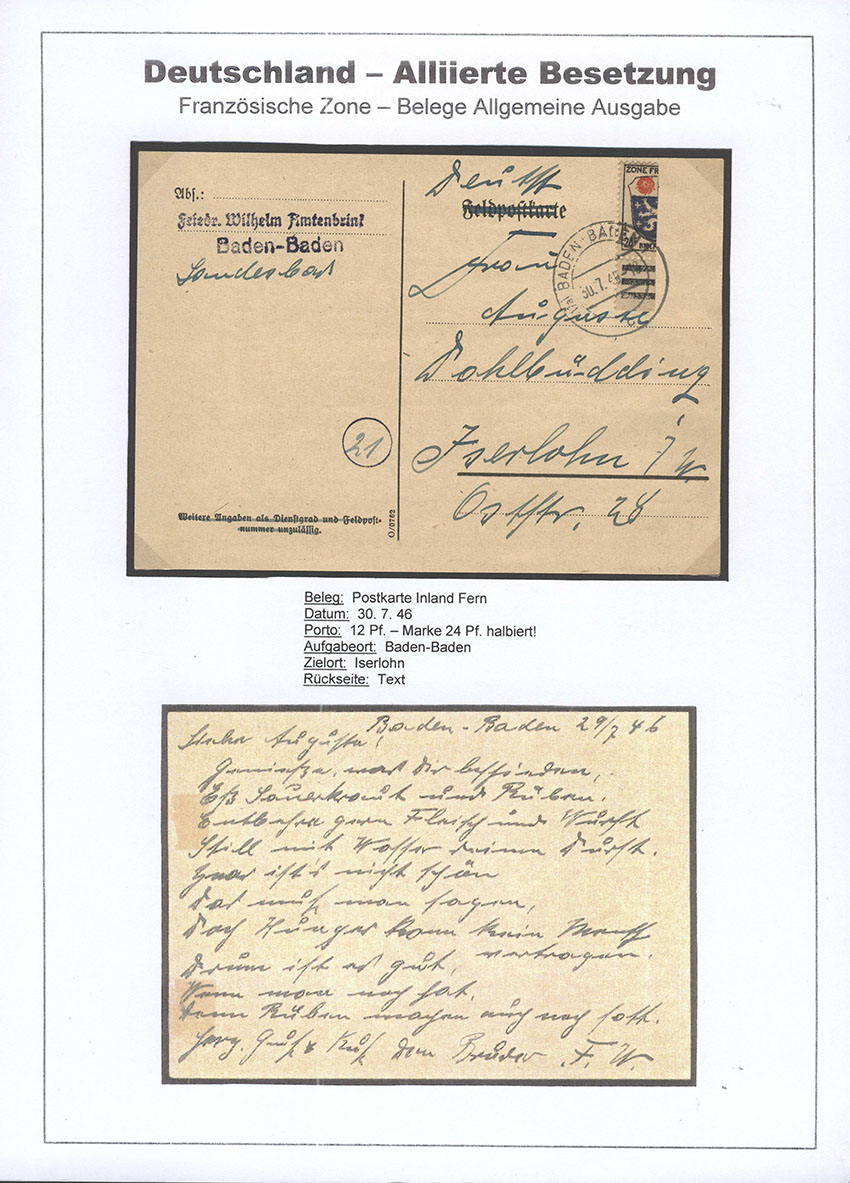 Deutschland – Alliierte Besetzung
Französische Zone – Belege Allgemeine Ausgabe
Abs.:
Friedr. Wilhelm Amtenbrink
Baden-Baden
Landesbad
21
Weitere Angaben als Dienstgrad und Feldpost-
nummer unzulässig.
O/0762
Feldpostkarte
ZONE FR
24
BADEN-BADEN
30.7.46
Frau
Auguste
Dahlbüdding
Iserlohn i/W.
Oststr. 28
Beleg: Postkarte Inland Fern
Datum: 30. 7. 46
Porto: 12 Pf. – Marke 24 Pf. halbiert!
Aufgabeort: Baden-Baden
Zielort: Iserlohn
Rückseite: Text
Baden-Baden 29/7 46
Liebe Auguste!
Genieße, was dir beschieden,
Eß Sauerkraut und Rüben.
Entbehre gern Fleisch und Wurst
Still mit Wasser deinen Durst.
Zwar ist's nicht schön
Das muß man sagen,
Doch Hunger kann kein Mensch
vertragen.
Drum ist es gut,
Wenn man noch hat.
Denn Rüben machen auch noch satt.
Herz. Gruß & Kuß dein Bruder F. W.